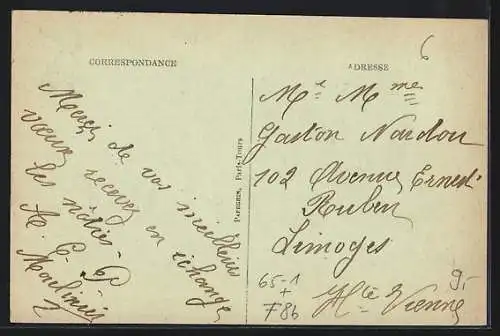 CORRESPONDANCE
Merci de vos meilleurs
vœux recevez en échange
les nôtres
A. G.
Moulinier
Papeghin, Paris-Tours
ADRESSE
6
Mr Mme
Gaston Nardou
102 Avenue Ernest
Ruben
Limoges
Hte Vienne
65-1
+
F86
9.-